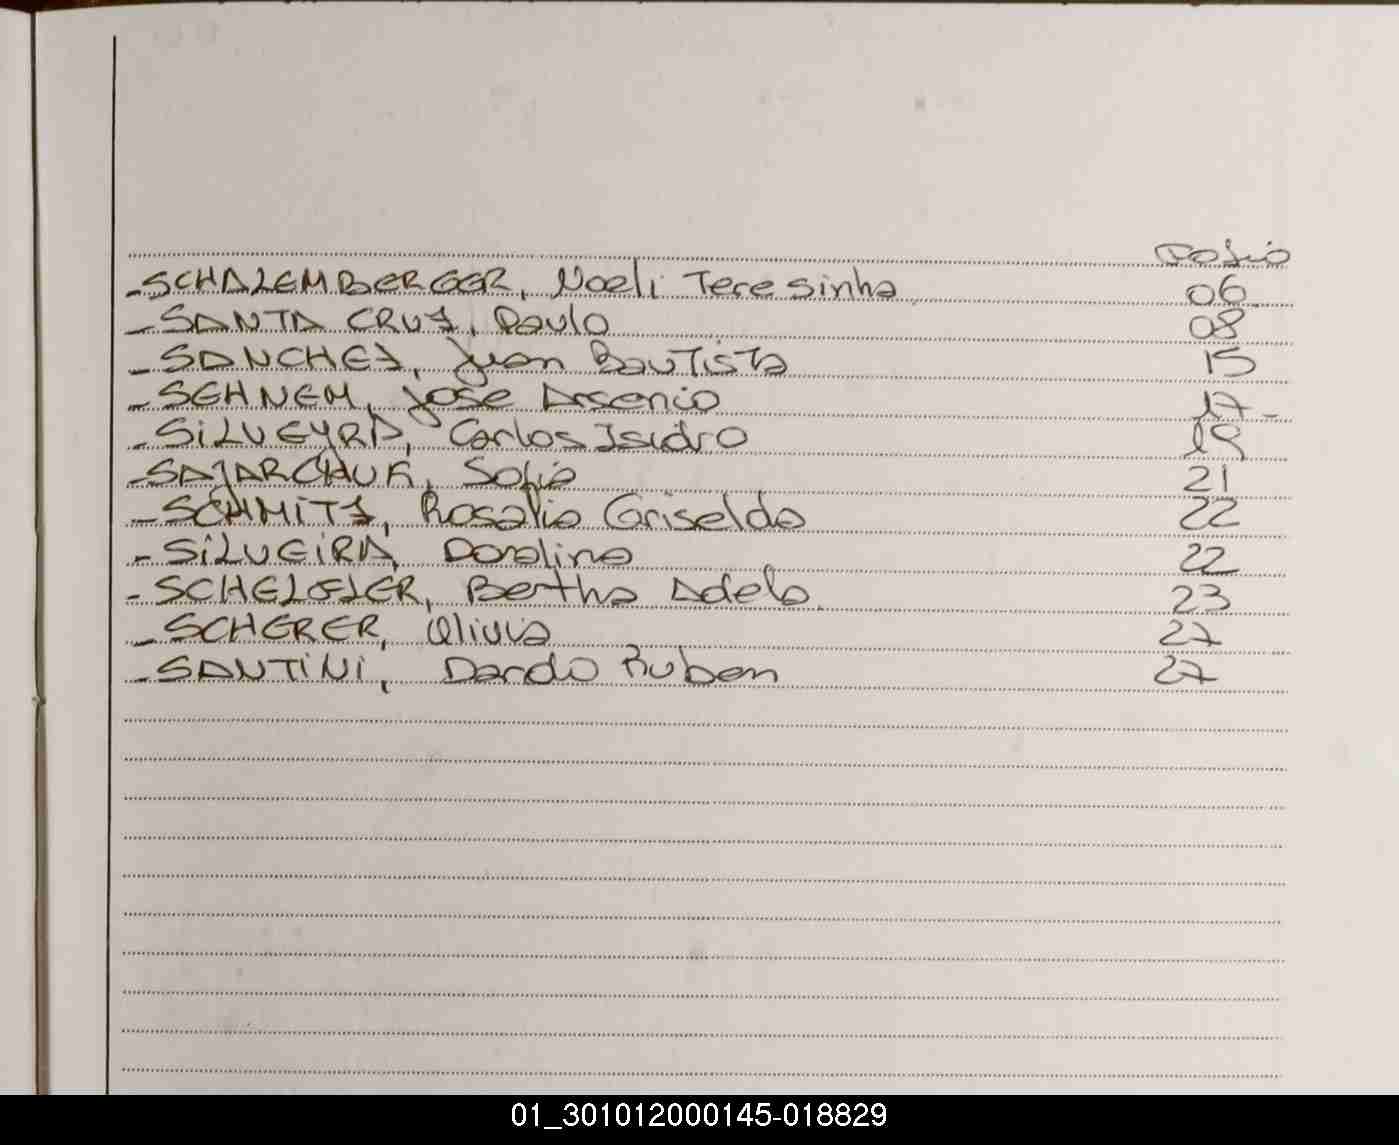 Folio
- SCHALEMBERGER, Noeli Teresinha 06
- SANTA CRUZ, Paulo 08
- SANCHEZ, Juan Bautista 15
- SEHNEM, Jose Arsenio 17-
- SiLVEYRA, Carlos Isidro 19
- SAJARCHUK, Sofia 21
- SCHMITZ, Rosalia Griselda 22
- SiLVEiRA, Doralina 22
- Bertha Adela 23
- SCHERER, Olivia 27
- SANTiNi, Dardo Ruben 27
01_301012000145-018829